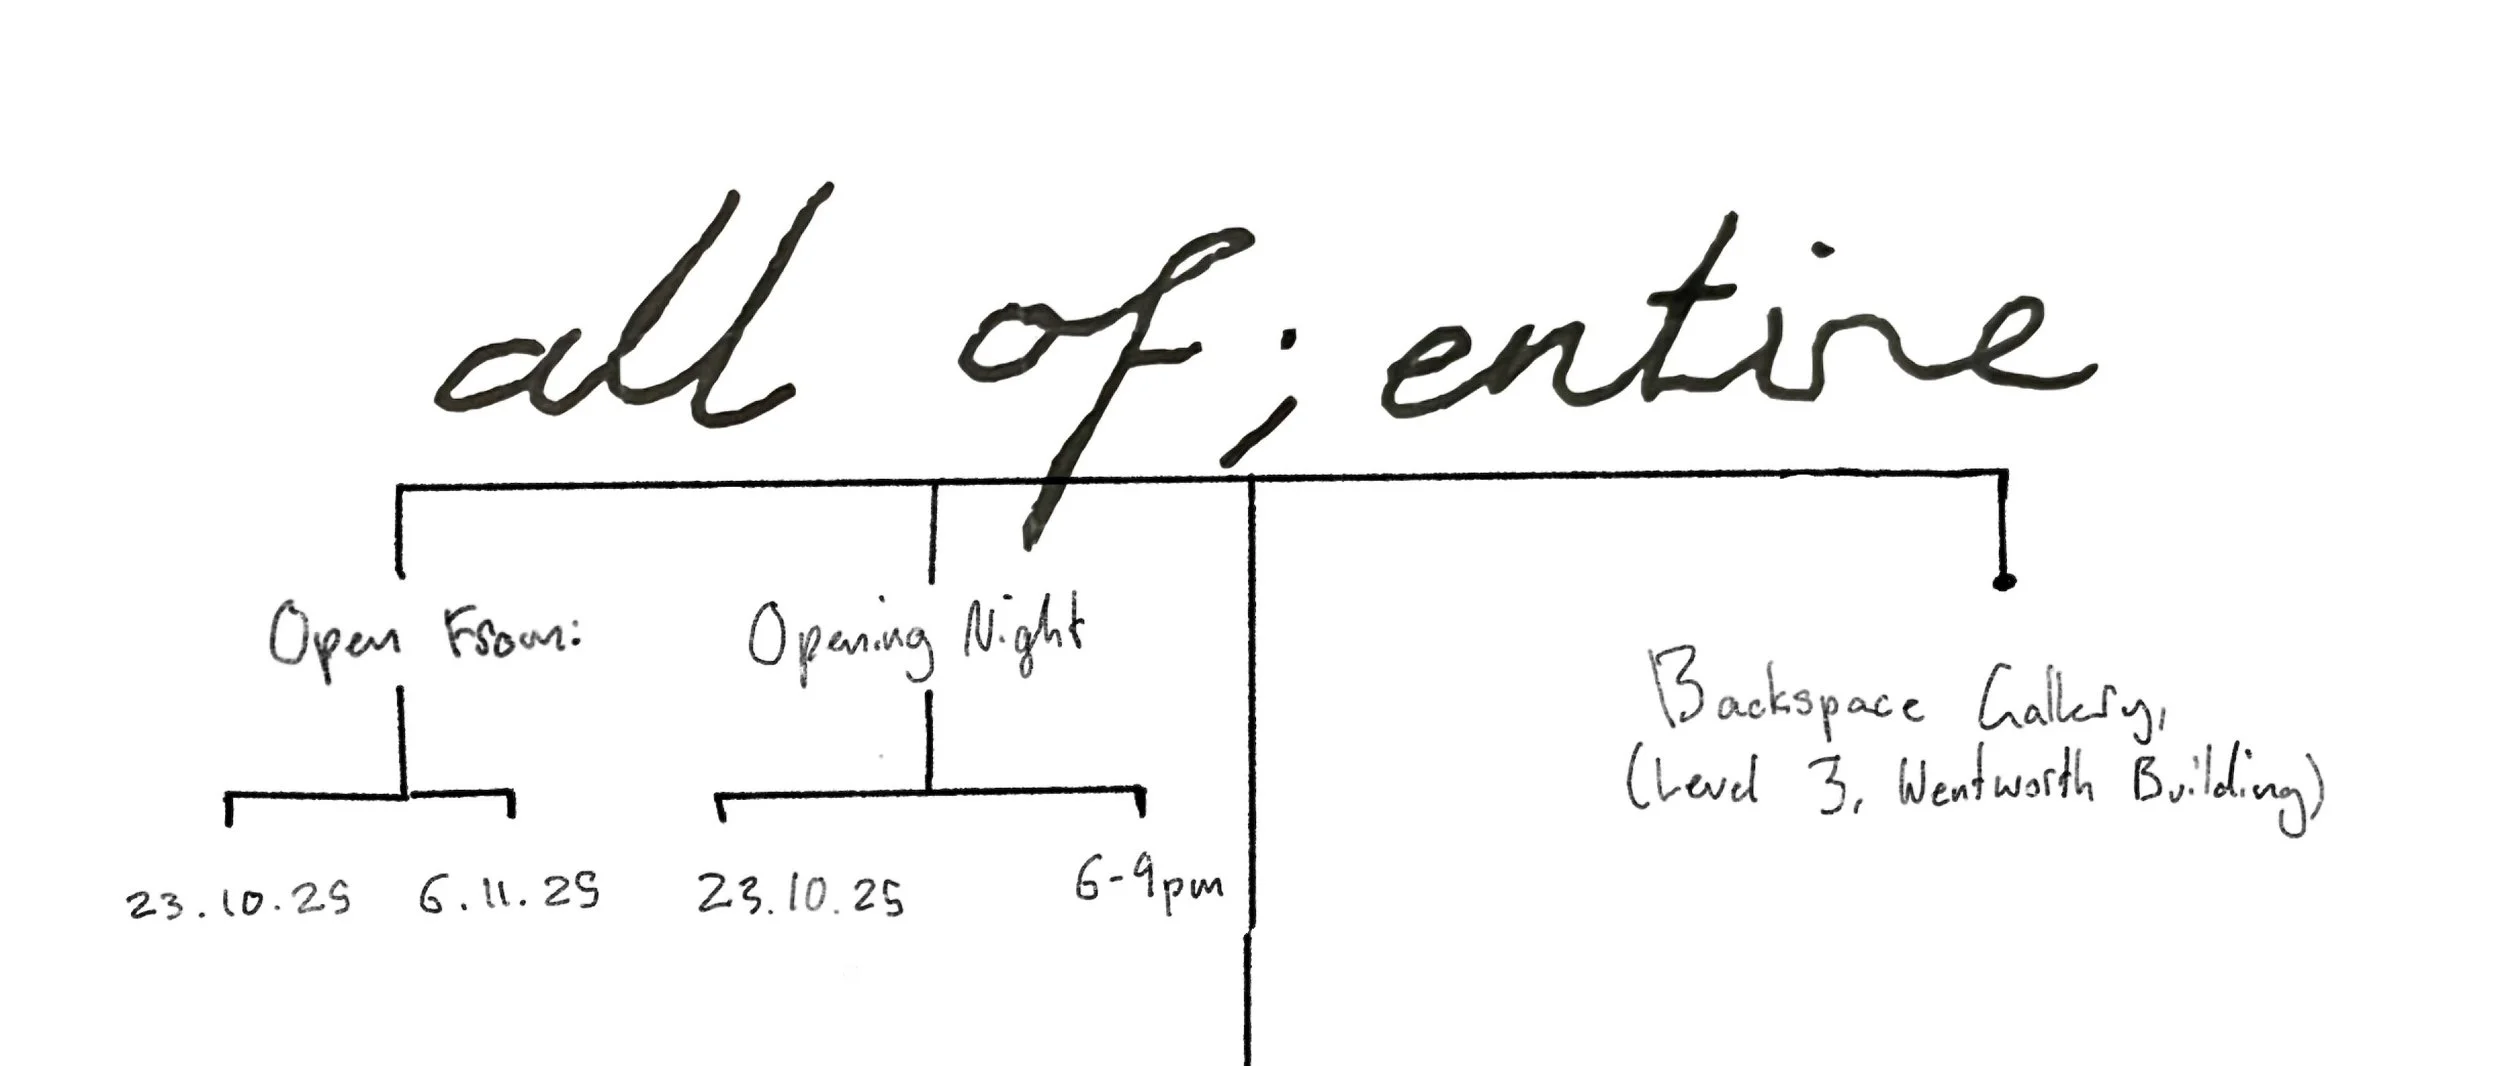 all of; entire
Open From:
23.10.25 6.11.25
Opening Night
23.10.25 6-9pm
Backspace Gallery,
(Level 3, Wentworth Building)